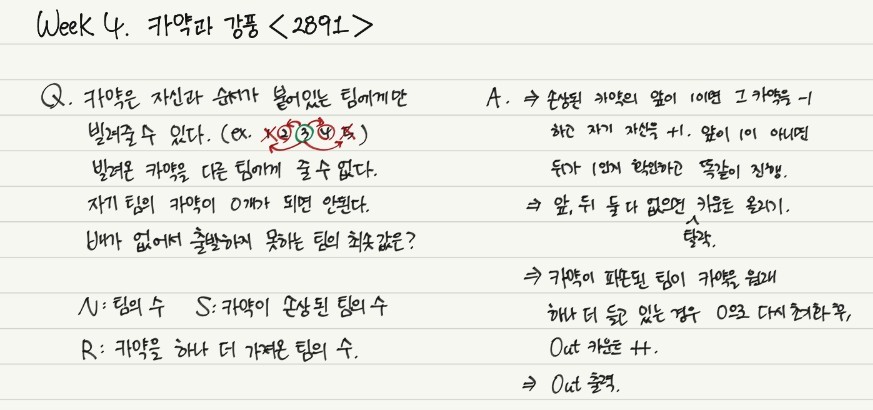 Week 4. 카약과 강풍 <2891>
Q. 카약은 자신과 순서가 붙어있는 팀에게만
빌려줄 수 있다. (ex. 1 2 3 4 5)
빌려온 카약을 다른 팀에게 줄 수 없다.
자기 팀의 카약이 0개가 되면 안된다.
배가 없어서 출발하지 못하는 팀의 최솟값은?
N: 팀의 수 S: 카약이 손상된 팀의 수
R: 카약을 하나 더 가져온 팀의 수.
A. ⇒ 손상된 카약의 앞이 1이면 그 카약을 -1
하고 자기 자신을 +1. 앞이 1이 아니면
뒤가 1인지 확인하고 똑같이 진행.
⇒ 앞, 뒤 둘 다 없으면 카운트 올리기.
탈락.
⇒ 카약이 파손된 팀이 카약을 원래
하나 더 들고 있는 경우 0으로 다시 초기화 후,
Out 카운트 ++.
⇒ Out 출력.